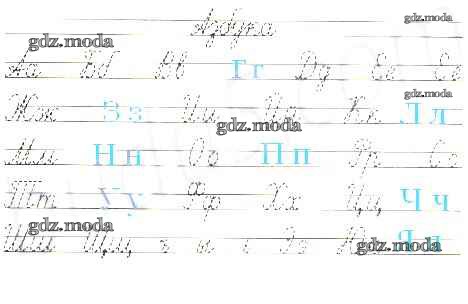 Азбука gdz.moda
gdz.moda
Аа Бб Вв Гг Дд Ее Ёё
Жж Зз Ии Йй Кк Лл gdz.moda
gdz.moda
Мм Нн Оо Пп Рр Сс
Тт Уу Фф Хх Цц Чч
gdz.moda
Шш Щщ ъ ы ь Ээ Юю Яя gdz.moda